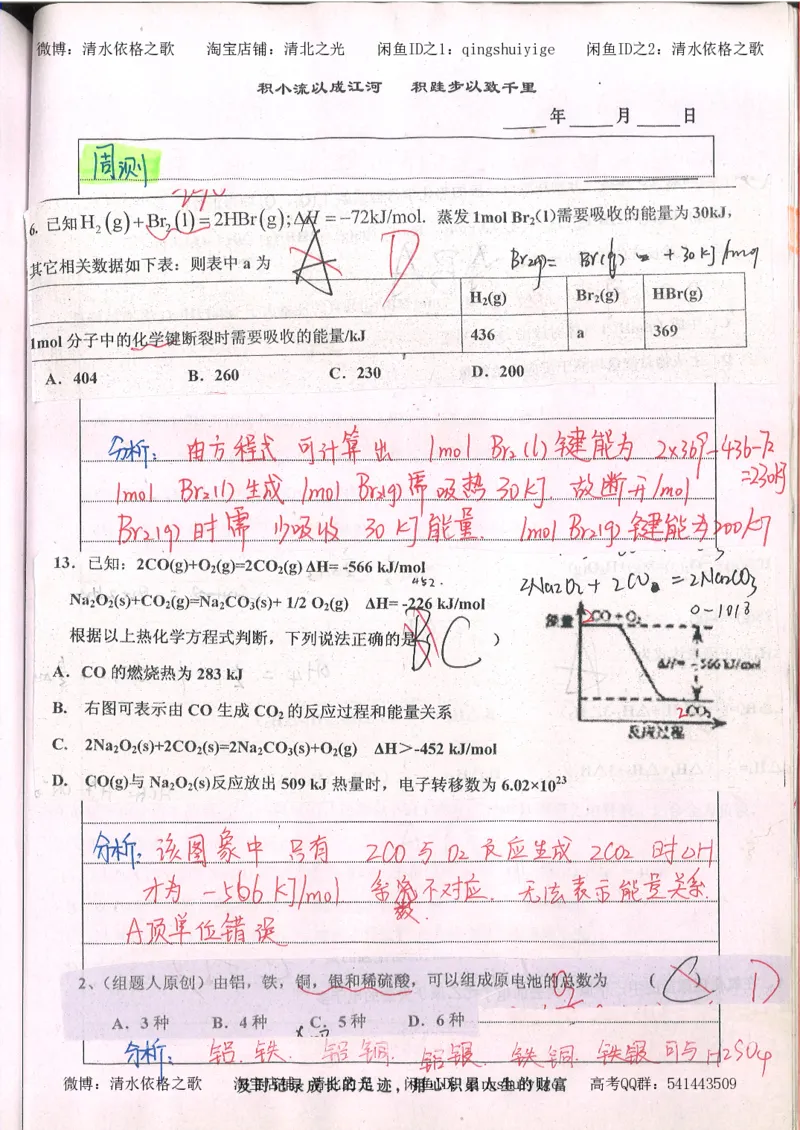 微博：清水依格之歌 淘宝店铺：清北之光 闲鱼ID之1：qingshuiyige 闲鱼ID之2：清水依格之歌
积小流以成江河 积跬步以致千里
____年____月____日
周测
6. 已知H₂(g)+Br₂(l)=2HBr(g);ΔH=−72kJ/mol. 蒸发1mol Br₂(l)需要吸收的能量为30kJ，
其它相关数据如下表：则表中a为 A D
+30kJ/mol
H₂(g) Br₂(g) HBr(g)
1mol分子中的化学键断裂时需要吸收的能量/kJ 436 a 369
A. 404 B. 260 C. 230 D. 200
分析：由方程式可计算出 1mol Br₂(l)键能为 2×369-436-72
=230kJ
1mol Br₂(l)生成 1mol Br₂(g)需吸热30kJ. 故断开1mol
Br₂(g)时需少吸收 30kJ能量. 1mol Br₂(g)键能为200kJ
13. 已知：2CO(g)+O₂(g)=2CO₂(g) ΔH= -566 kJ/mol
452.
2Na₂O₂+2CO₂=2Na₂CO₃
Na₂O₂(s)+CO₂(g)=Na₂CO₃(s)+ 1/2 O₂(g) ΔH= -226 kJ/mol
0-1018
根据以上热化学方程式判断，下列说法正确的是（ B C ）
能量 2CO+O₂
ΔH= -566kJ/mol
2CO₂
反应过程
A. CO的燃烧热为283 kJ
B. 右图可表示由CO生成CO₂的反应过程和能量关系
C. 2Na₂O₂(s)+2CO₂(s)=2Na₂CO₃(s)+O₂(g) ΔH＞-452 kJ/mol
D. CO(g)与Na₂O₂(s)反应放出509 kJ热量时，电子转移数为6.02×10²³
分析：该图象中 只有 2CO与O₂反应生成2CO₂时ΔH
才为 -566kJ/mol 系数不对应. 无法表示能量关系.
A项单位错误
2、（组题人原创）由铝，铁，铜，银和稀硫酸，可以组成原电池的总数为 （ C D
O₂
A. 3种 B. 4种 C. 5种 D. 6种
分析：铝.铁. 铝铜. 铝银. 铁铜. 铁银可与H2SO4
及时记录成长的足迹，用心积累人生的财富
微博：清水依格之歌 淘宝店铺：清北之光 闲鱼ID：qingshuiyige 高考QQ群：541443509